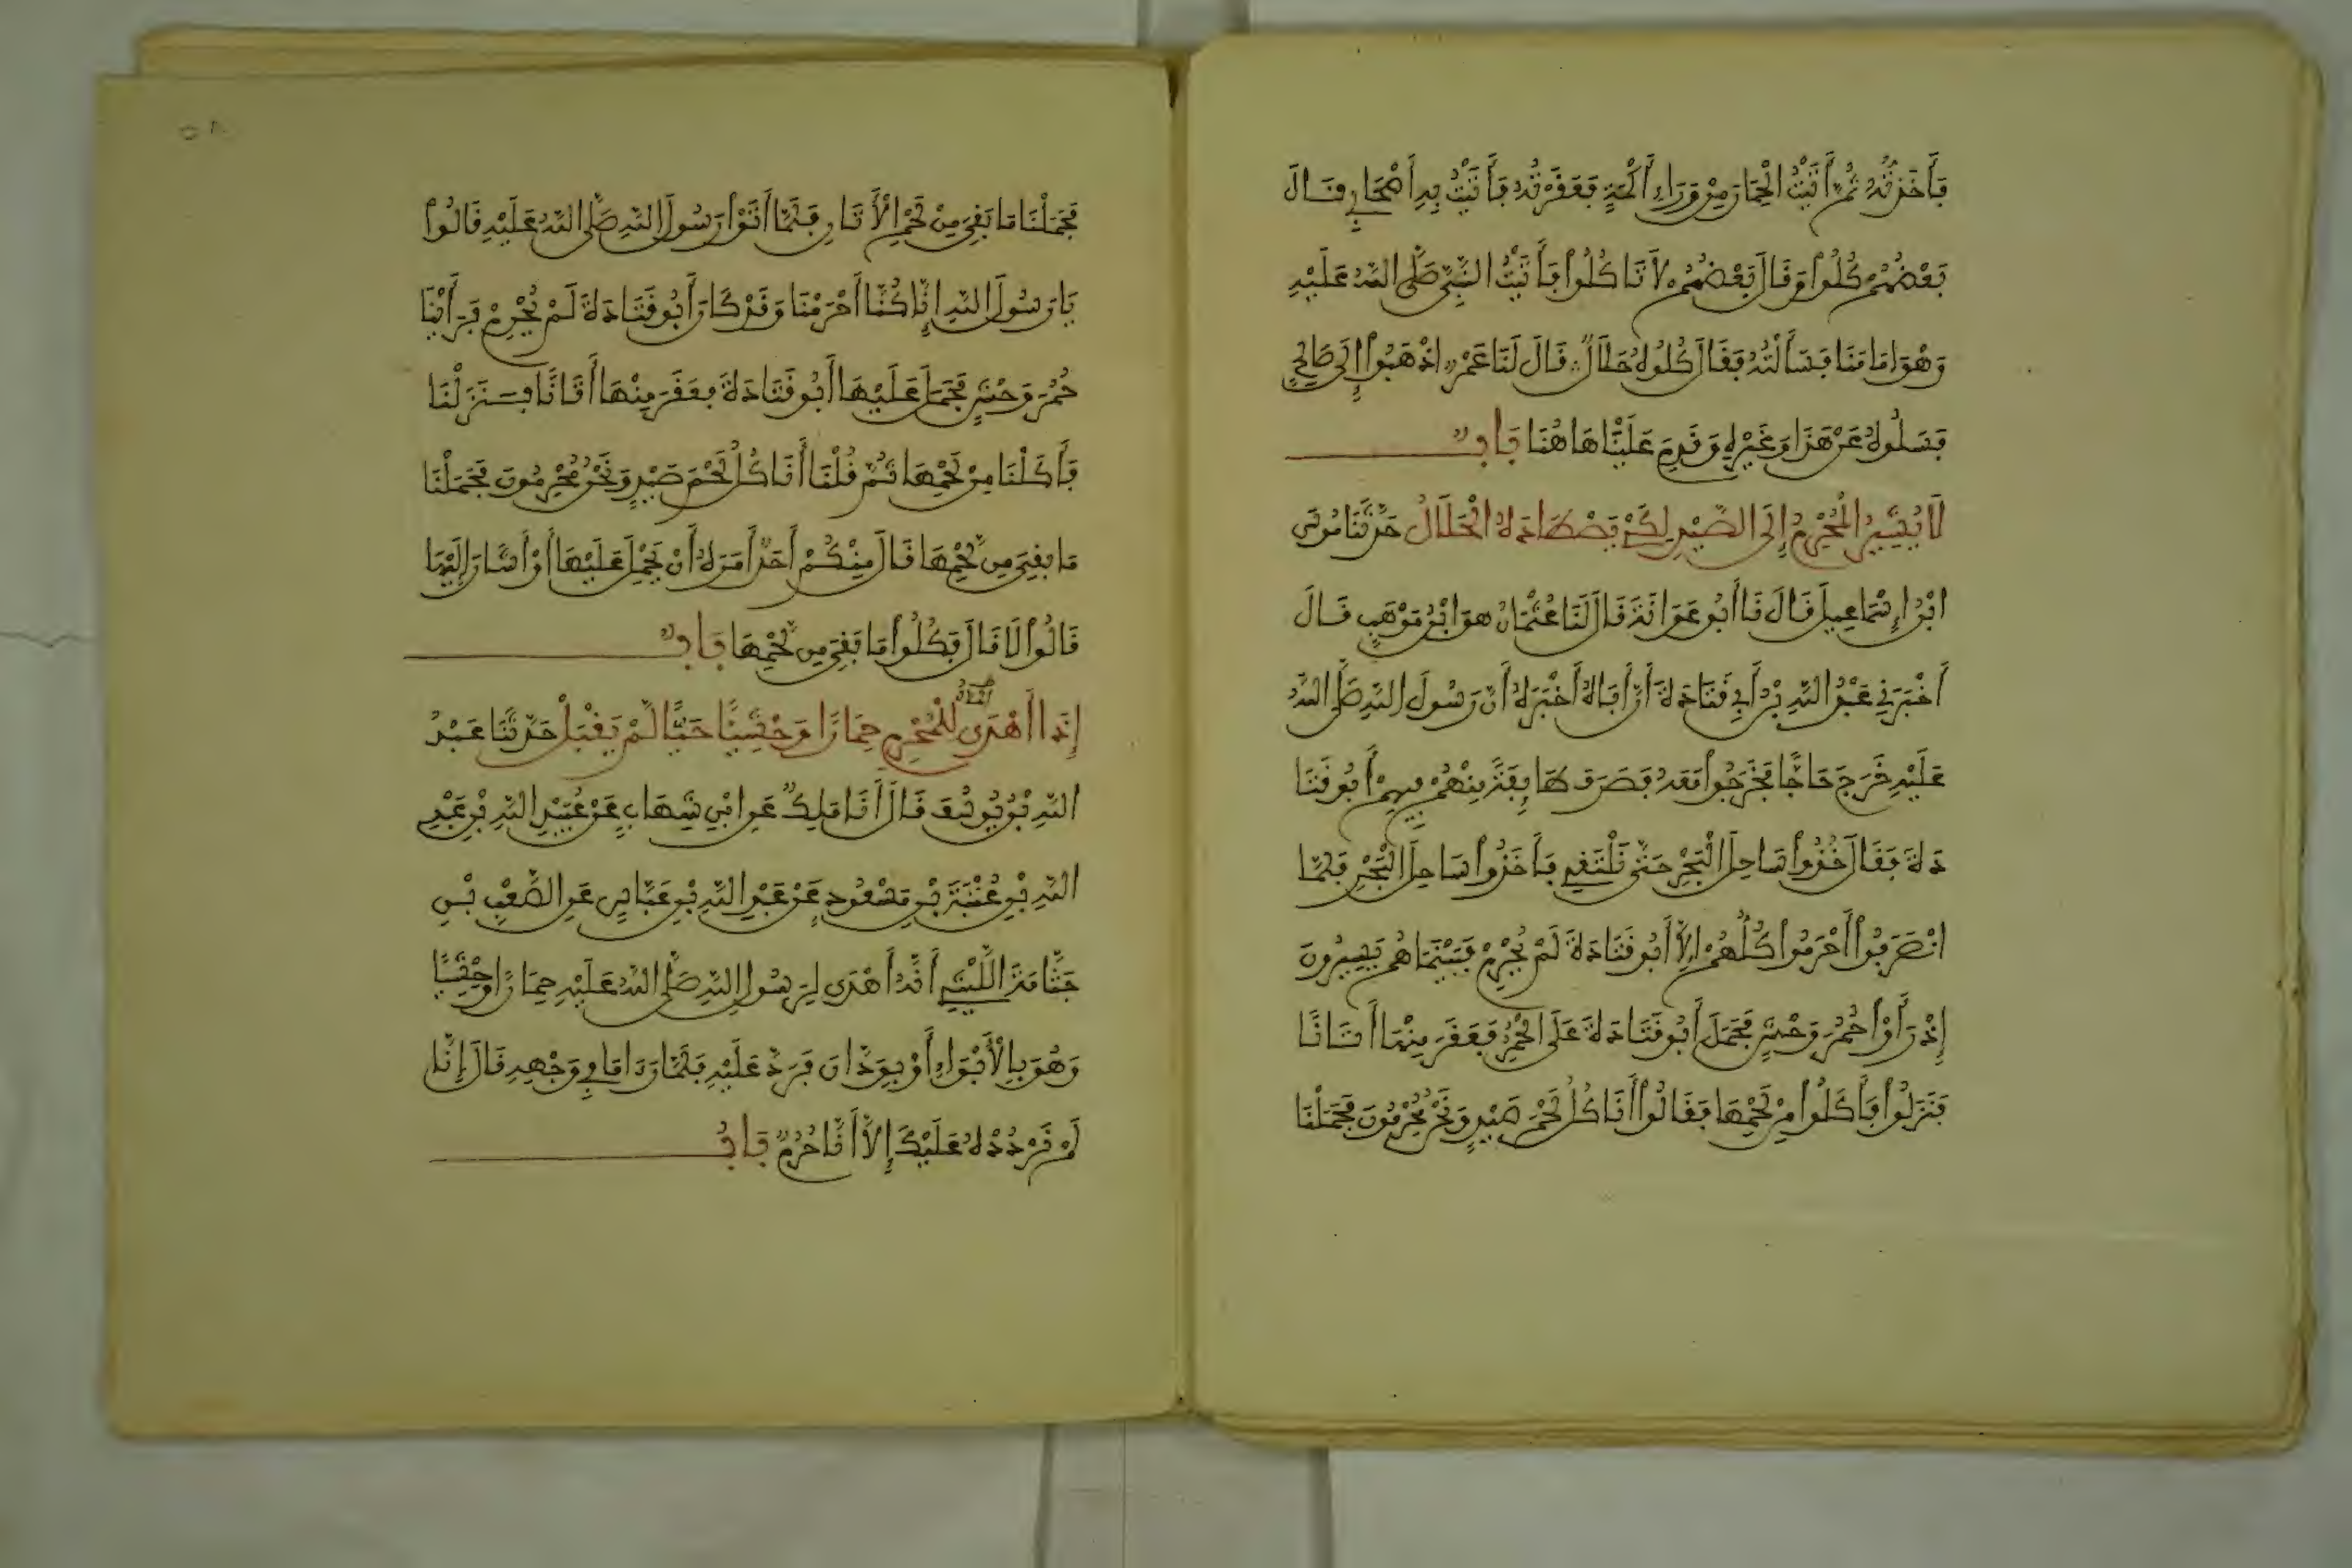 فَأَخَذْتُهُ ثُمَّ أَتَيْتُ الْحِمَارَ مِنْ وَرَاءِ أَكَمَةٍ فَعَقَرْتُهُ فَأَتَيْتُ بِهِ أَصْحَابِي فَقَالَ
بَعْضُهُمْ كُلُوا وَقَالَ بَعْضُهُمْ لَا تَاكُلُوا فَأَتَيْتُ النَّبِيَّ صَلَّى اللَّهُ عَلَيْهِ
وَهْوَ أَمَامَنَا فَسَأَلْتُهُ فَقَالَ كُلُوهُ حَلَالٌ قَالَ لَنَا عَمْرٌو اذْهَبُوا إِلَى صَالِحٍ
فَسَلُوهُ عَنْ هَذَا وَغَيْرِهِ وَقَدِمَ عَلَيْنَا هَاهُنَا بَابٌ
لَا يُشِيرُ الْمُحْرِمُ إِلَى الصَّيْدِ لِكَيْ يَصْطَادَهُ الْحَلَالُ حَدَّثَنَا مُوسَى
ابْنُ إِسْمَاعِيلَ قَالَ نَا أَبُو عَوَانَةَ قَالَ لَنَا عُثْمَانُ هُوَ ابْنُ مَوْهَبٍ قَالَ
أَخْبَرَنِي عَبْدُ اللَّهِ بْنُ أَبِي قَتَادَةَ أَنَّ أَبَاهُ أَخْبَرَهُ أَنَّ رَسُولَ اللَّهِ صَلَّى اللَّهُ
عَلَيْهِ خَرَجَ حَاجًّا فَخَرَجُوا مَعَهُ فَصَرَفَ طَائِفَةً مِنْهُمْ فِيهِمْ أَبُو قَتَا
دَةَ فَقَالَ خُذُوا سَاحِلَ الْبَحْرِ حَتَّى نَلْتَقِي فَأَخَذُوا سَاحِلَ الْبَحْرِ فَلَمَّا
انْصَرَفُوا أَحْرَمُوا كُلُّهُمْ إِلَّا أَبُو قَتَادَةَ لَمْ يُحْرِمْ فَبَيْنَمَا هُمْ يَسِيرُونَ
إِذْ رَأَوْا حُمُرَ وَحْشٍ فَحَمَلَ أَبُو قَتَادَةَ عَلَى الْحُمُرِ فَعَقَرَ مِنْهَا أَتَانًا
فَنَزَلُوا فَأَكَلُوا مِنْ لَحْمِهَا فَقَالُوا أَنَاكُلُ لَحْمَ صَيْدٍ وَنَحْنُ مُحْرِمُونَ فَحَمَلْنَا
فَحَمَلْنَا مَا بَقِيَ مِنْ لَحْمِ الْأَتَانِ فَلَمَّا أَتَوْا رَسُولَ اللَّهِ صَلَّى اللَّهُ عَلَيْهِ قَالُوا
يَا رَسُولَ اللَّهِ إِنَّا كُنَّا أَحْرَمْنَا وَقَدْ كَانَ أَبُو قَتَادَةَ لَمْ يُحْرِمْ فَرَأَيْنَا
حُمُرَ وَحْشٍ فَحَمَلَ عَلَيْهَا أَبُو قَتَادَةَ فَعَقَرَ مِنْهَا أَتَانًا فَنَزَلْنَا
فَأَكَلْنَا مِنْ لَحْمِهَا ثُمَّ قُلْنَا أَنَاكُلُ لَحْمَ صَيْدٍ وَنَحْنُ مُحْرِمُونَ فَحَمَلْنَا
مَا بَقِيَ مِن لَّحْمِهَا قَالَ مِنْكُمْ أَحَدٌ أَمَرَهُ أَنْ يَحْمِلَ عَلَيْهَا أَوْ أَشَارَ إِلَيْهَا
قَالُوا لَا قَالَ فَكُلُوا مَا بَقِيَ مِن لَّحْمِهَا بَابٌ
إِذَا أَهْدَى لِلْمُحْرِمِ حِمَارًا وَحْشِيًّا حَيًّا لَمْ يَقْبَلْ حَدَّثَنَا عَبْدُ
اللَّهِ بْنُ يُوسُفَ قَالَ أَنَا مَلِكٌ عَنِ ابْنِ شِهَابٍ عَنْ عُبَيْدِ اللَّهِ بْنِ عَبْدِ
اللَّهِ بْنِ عُتْبَةَ بْنِ مَسْعُودٍ عَنْ عَبْدِ اللَّهِ بْنِ عَبَّاسٍ عَنِ الصَّعْبِ بْنِ
جَثَّامَةَ اللَّيْثِيِّ أَنَّهُ أَهْدَى لِرَسُولِ اللَّهِ صَلَّى اللَّهُ عَلَيْهِ حِمَارًا وَحْشِيًّا
وَهُوَ بِالْأَبْوَاءِ أَوْ بِوَدَّانَ فَرَدَّ عَلَيْهِ فَلَمَّا رَءَا مَا فِي وَجْهِهِ قَالَ إِنَّا
لَمْ نَرْدُدْهُ عَلَيْكَ إِلَّا أَنَّا حُرُمٌ بَابُ